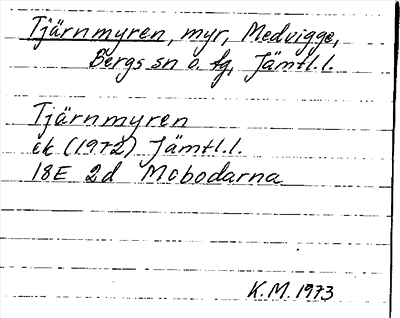 Tjärnmyren, myr, Medvigge,
Bergs sn o. fg, Jämtl.l.
Tjärnmyren
ek (1972) Jämtl.l.
18E 2d Mobodarna
K.M. 1973